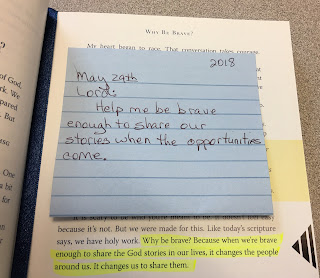 WHY BE BRAVE?
My heart began to race. That conversation takes courage
2018
May 29th
Lord:
Help me be brave
enough to share our
stories when the opportunities
come.
because it's not. But we were made for this. Like today's scripture
says, we have holy work. Why be brave? Because when we're brave
enough to share the God stories in our lives, it changes the people
around us. It changes us to share them.
of God,
k. We
pared
. But
One
a bit
for